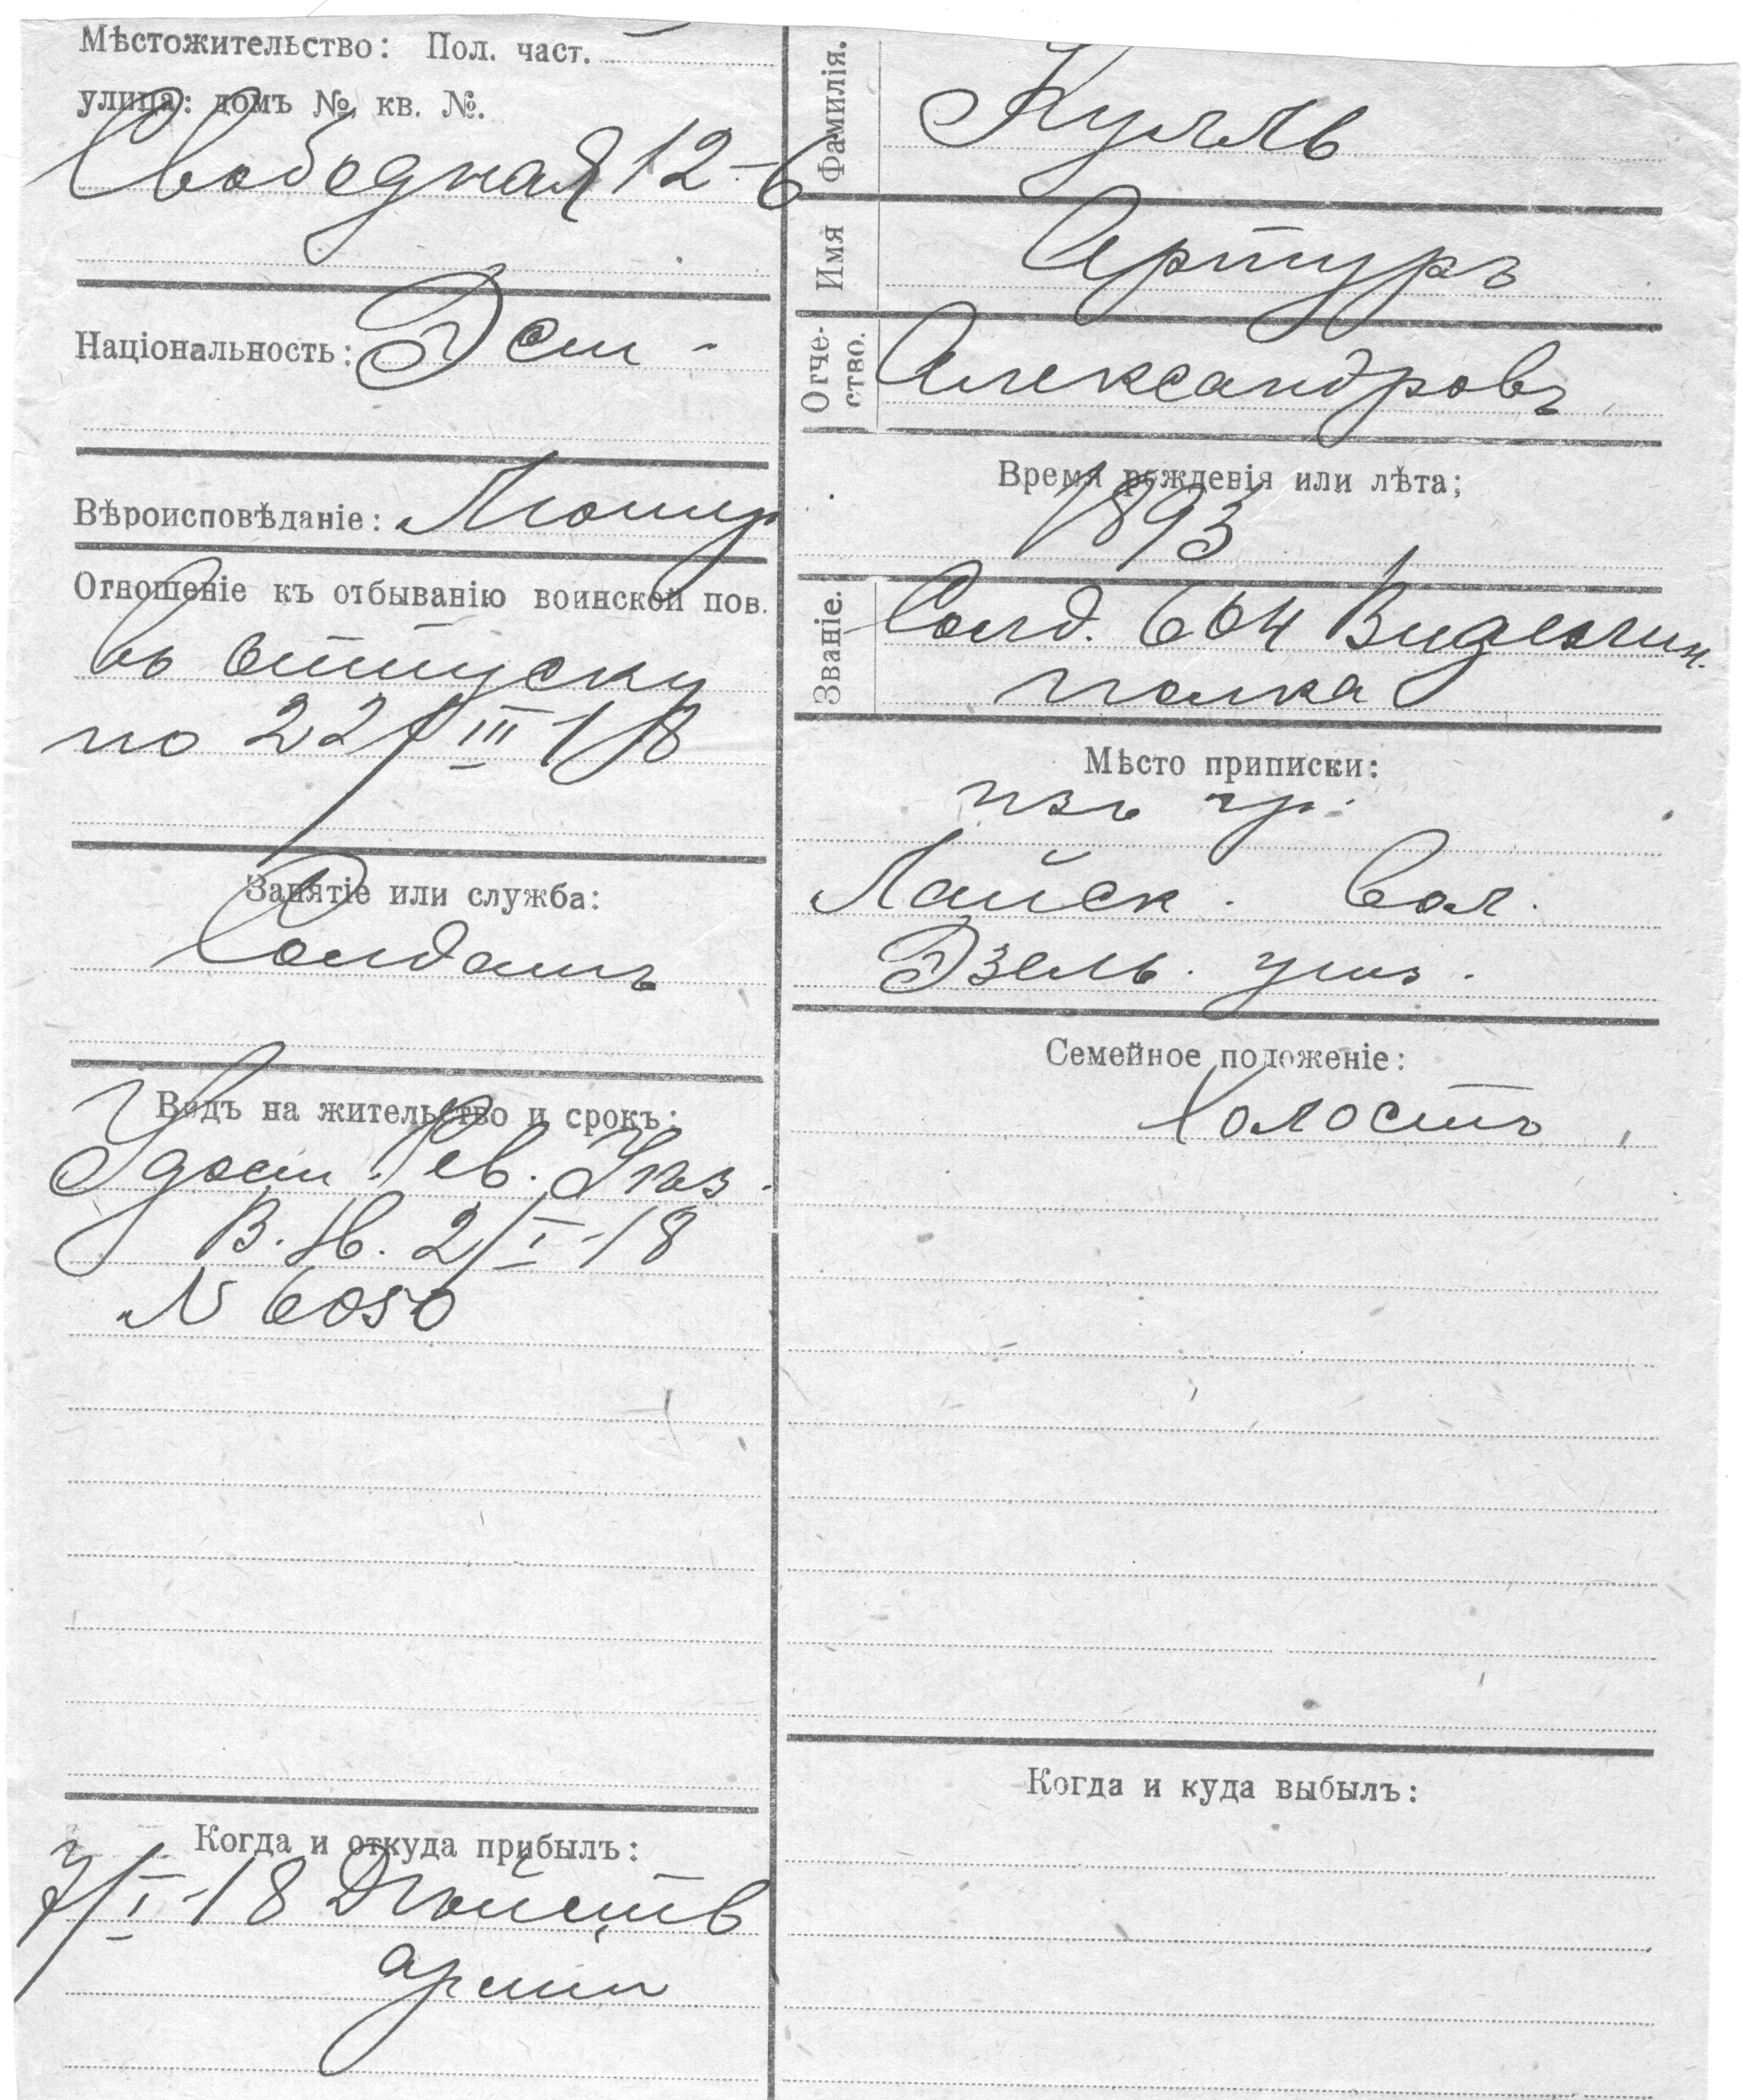 Мѣстожительство: Пол. част.
улица: домъ №, кв. №.
Свободная 12-6
Національность: Эст-
Вѣроисповѣданіе: Лютер
Отношеніе къ отбыванію воинской пов.
Въ отпуску
по 22/III 18
Занятіе или служба:
Солдатъ
Видъ на жительство и срокъ:
Удост. Рев. Уѣз.
В. Н. 2/I-18
N 6050
Когда и откуда прибылъ:
7/I-18 Дѣйств
арміи
Фамилія.
Кулль
Имя
Артуръ
Отче-
ство.
Александровъ
Время рожденія или лѣта;
1893
Званіе.
Солд. 604 Видголин.
полка
Мѣсто приписки:
изъ гр.
Лайск. вол.
Эзель. уѣз.
Семейное положеніе:
Холостъ
Когда и куда выбылъ: